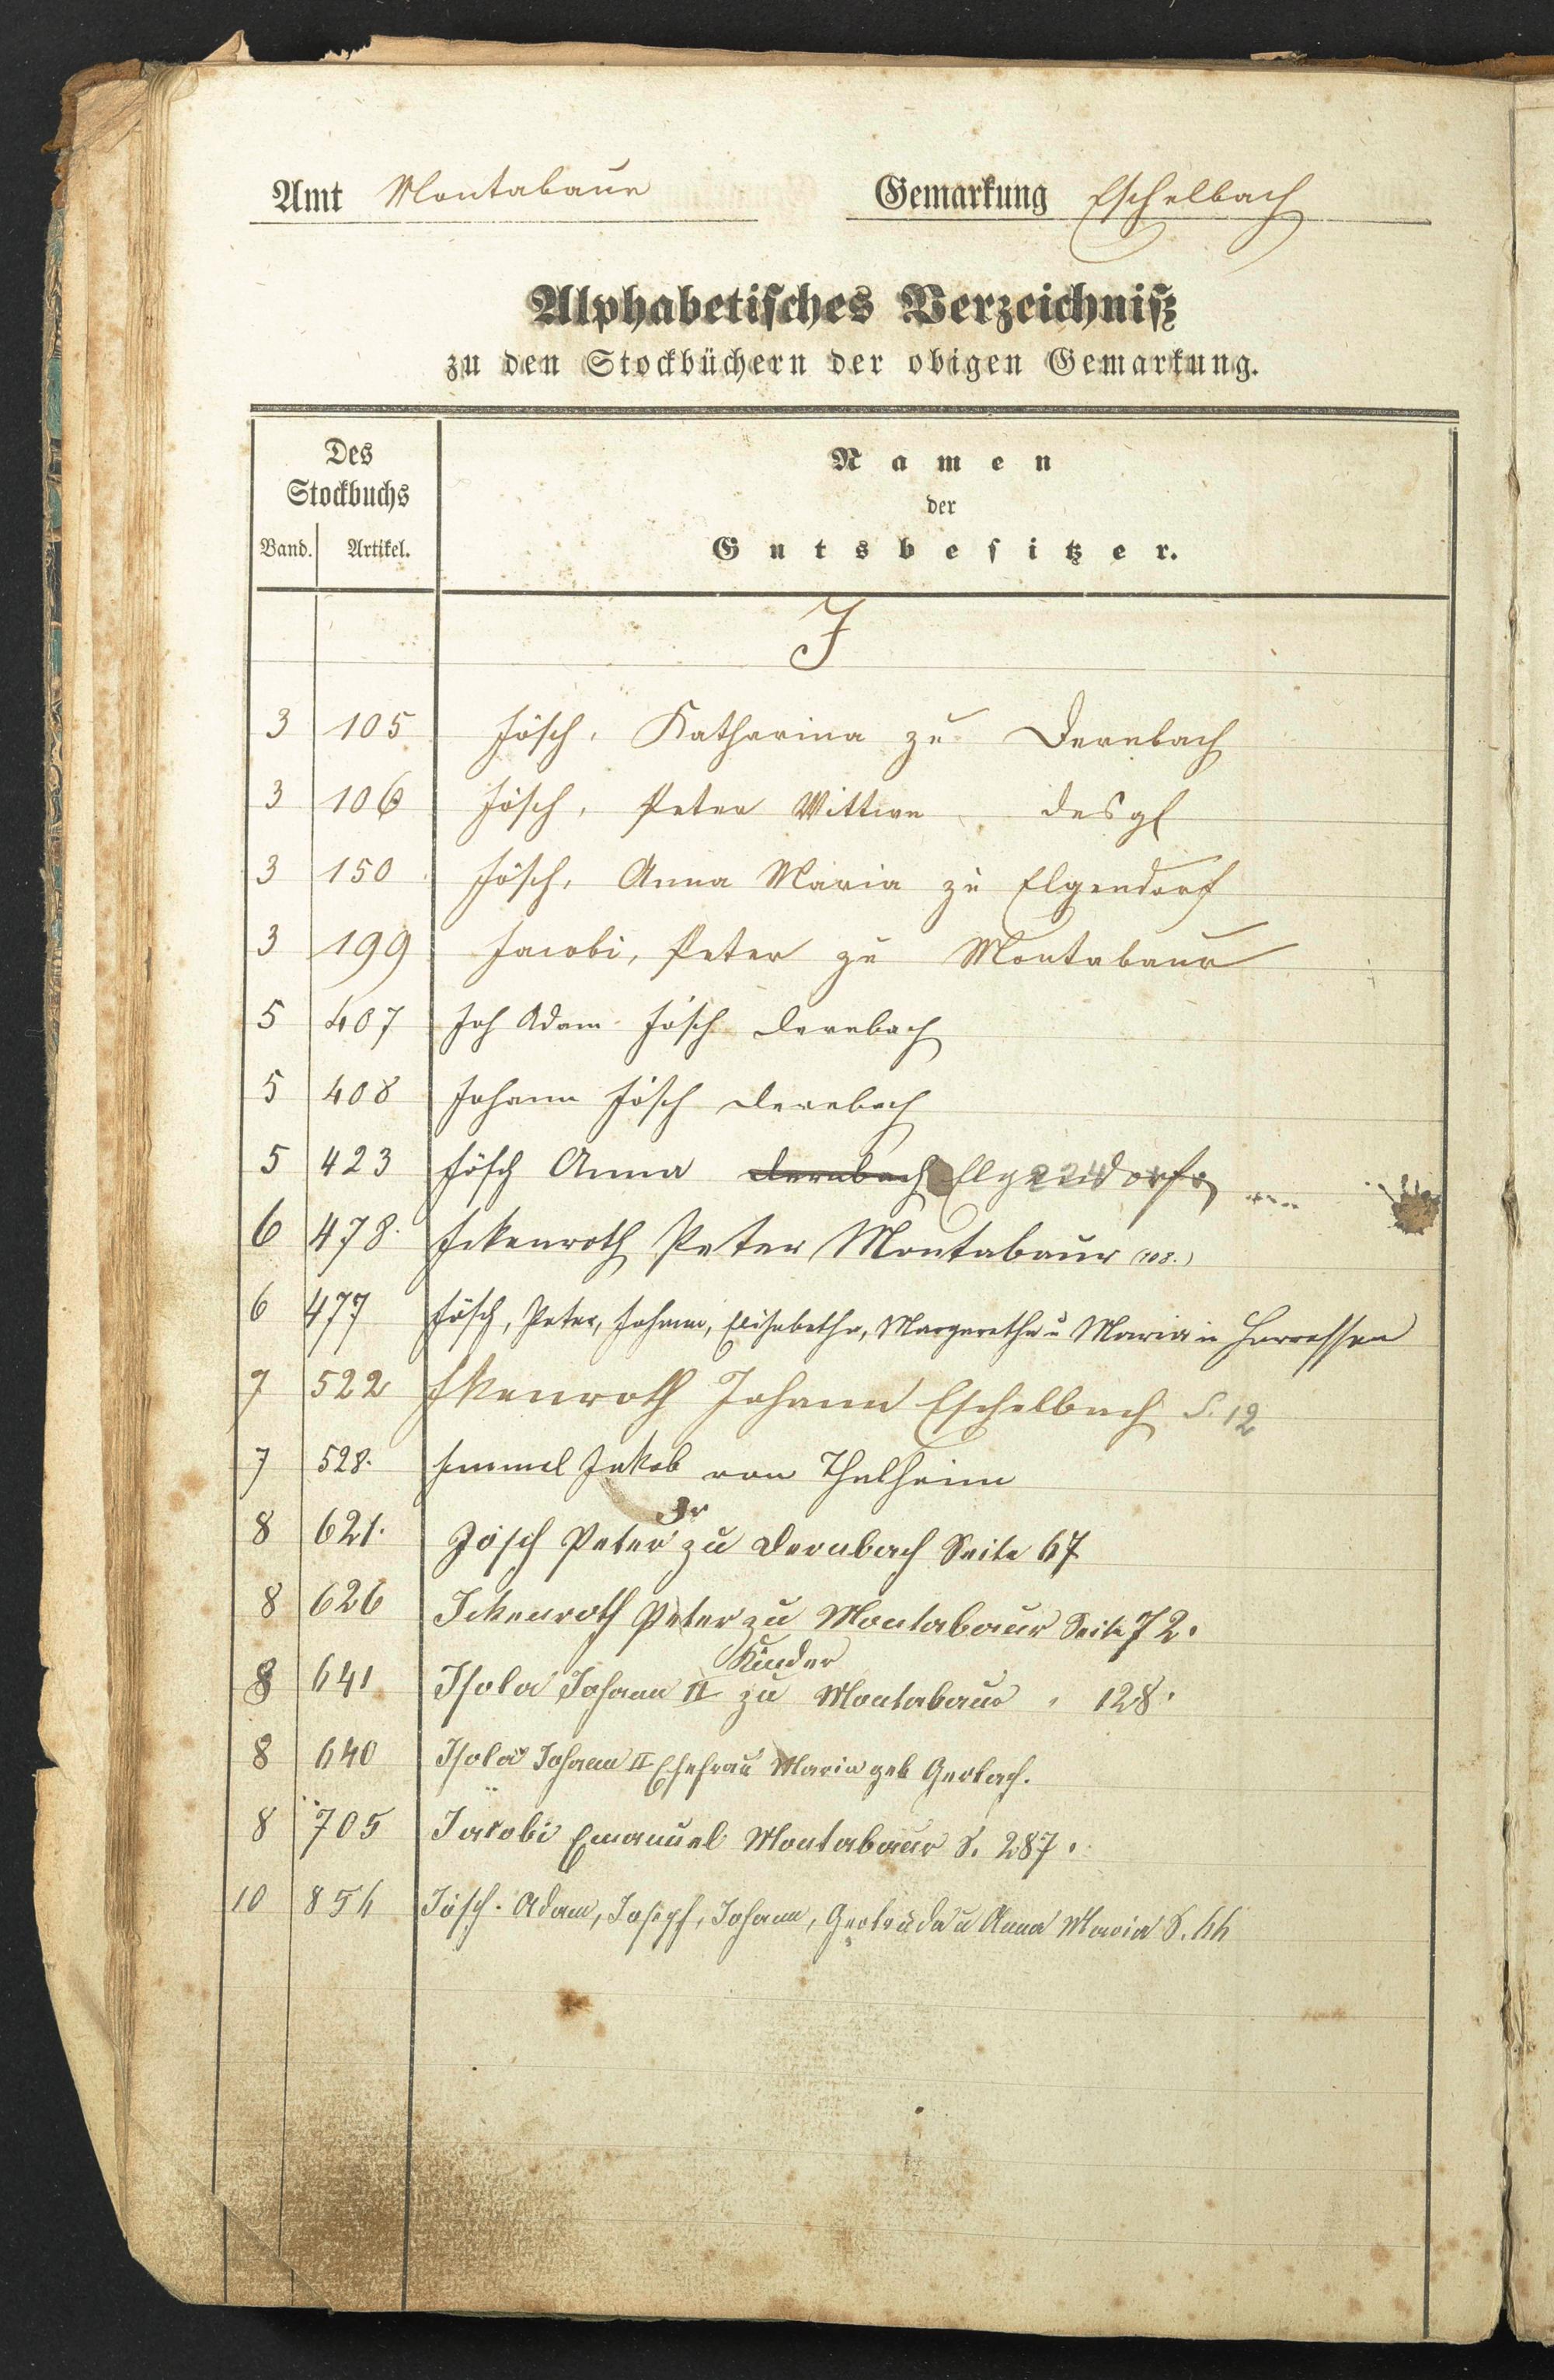 Amt Montabaur Gemarkung Eschelbach
Alphabetisches Verzeichniß
zu den Stockbüchern der obigen Gemarkung.
Des Stockbuchs
Namen
der
Gutsbesitzer.
Band. Artikel.
J
3 105 Jösch, Katharina zu Dernbach
3 106 Jösch, Peter Wittwe desgl
3 150 Jösch, Anna Maria zu Elgendorf
3 199 Jacobi, Peter zu Montabaur
5 407 Joh Adam Jösch Dernbach
5 408 Johann Jösch Dernbach
5 423 Jösch Anna Dernbach Elgendorf
6 478. Ickenroth Peter Montabaur (108.)
6 477 Jösch, Peter, Johann, Elisabetha, Margaretha u Maria in Horressen
7 522 Ikenroth Johann Eschelbach S. 12
7 528. Immel Jakob von Thalheim
8 621. Jösch Peter 3r zu Dernbach Seite 67
8 626 Ickenroth Peter zu Montabaur Seite 72.
8 641 Isola Johann II Kinder zu Montabaur " 128.
8 640 Isola Johann II Ehefrau Maria geb Gerlach.
8 705 Jacobi Emanuel Montabaur S. 287.
10 854 Jösch. Adam, Joseph, Johann, Gertruda u Anna Maria S. 44